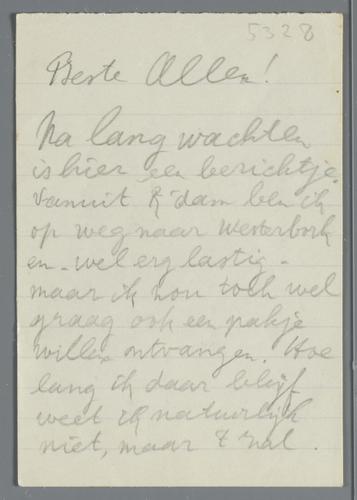 5328
Beste Allen!
Na lang wachten
is hier een berichtje.
Vanuit A'dam ben ik
op weg naar Westerbork
en - wel erg lastig -
maar ik zou toch wel
graag ook een pakje
willen ontvangen. Hoe
lang ik daar blijf
weet ik natuurlijk
niet, maar 't zal.